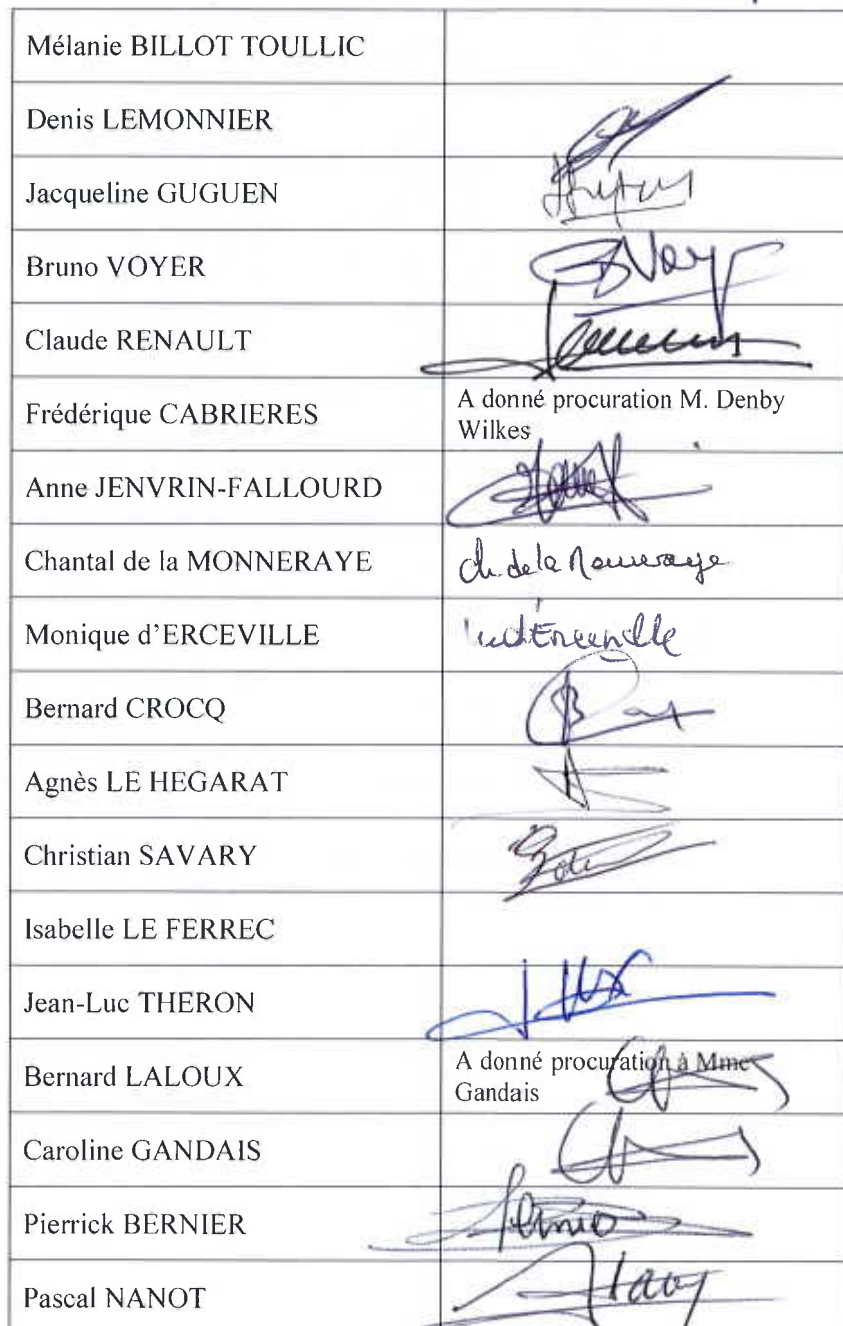 Mélanie BILLOT TOULLIC
Denis LEMONNIER
Jacqueline GUGUEN
Bruno VOYER
Claude RENAULT
Frédérique CABRIERES
A donné procuration M. Denby
Wilkes
Anne JENVRIN-FALLOURD
Chantal de la MONNERAYE
Ch. de la Monneraye
Monique d'ERCEVILLE
Bernard CROCQ
Agnès LE HEGARAT
Christian SAVARY
Isabelle LE FERREC
Jean-Luc THERON
Bernard LALOUX
A donné procuration à Mme
Gandais
Caroline GANDAIS
Pierrick BERNIER
Pascal NANOT